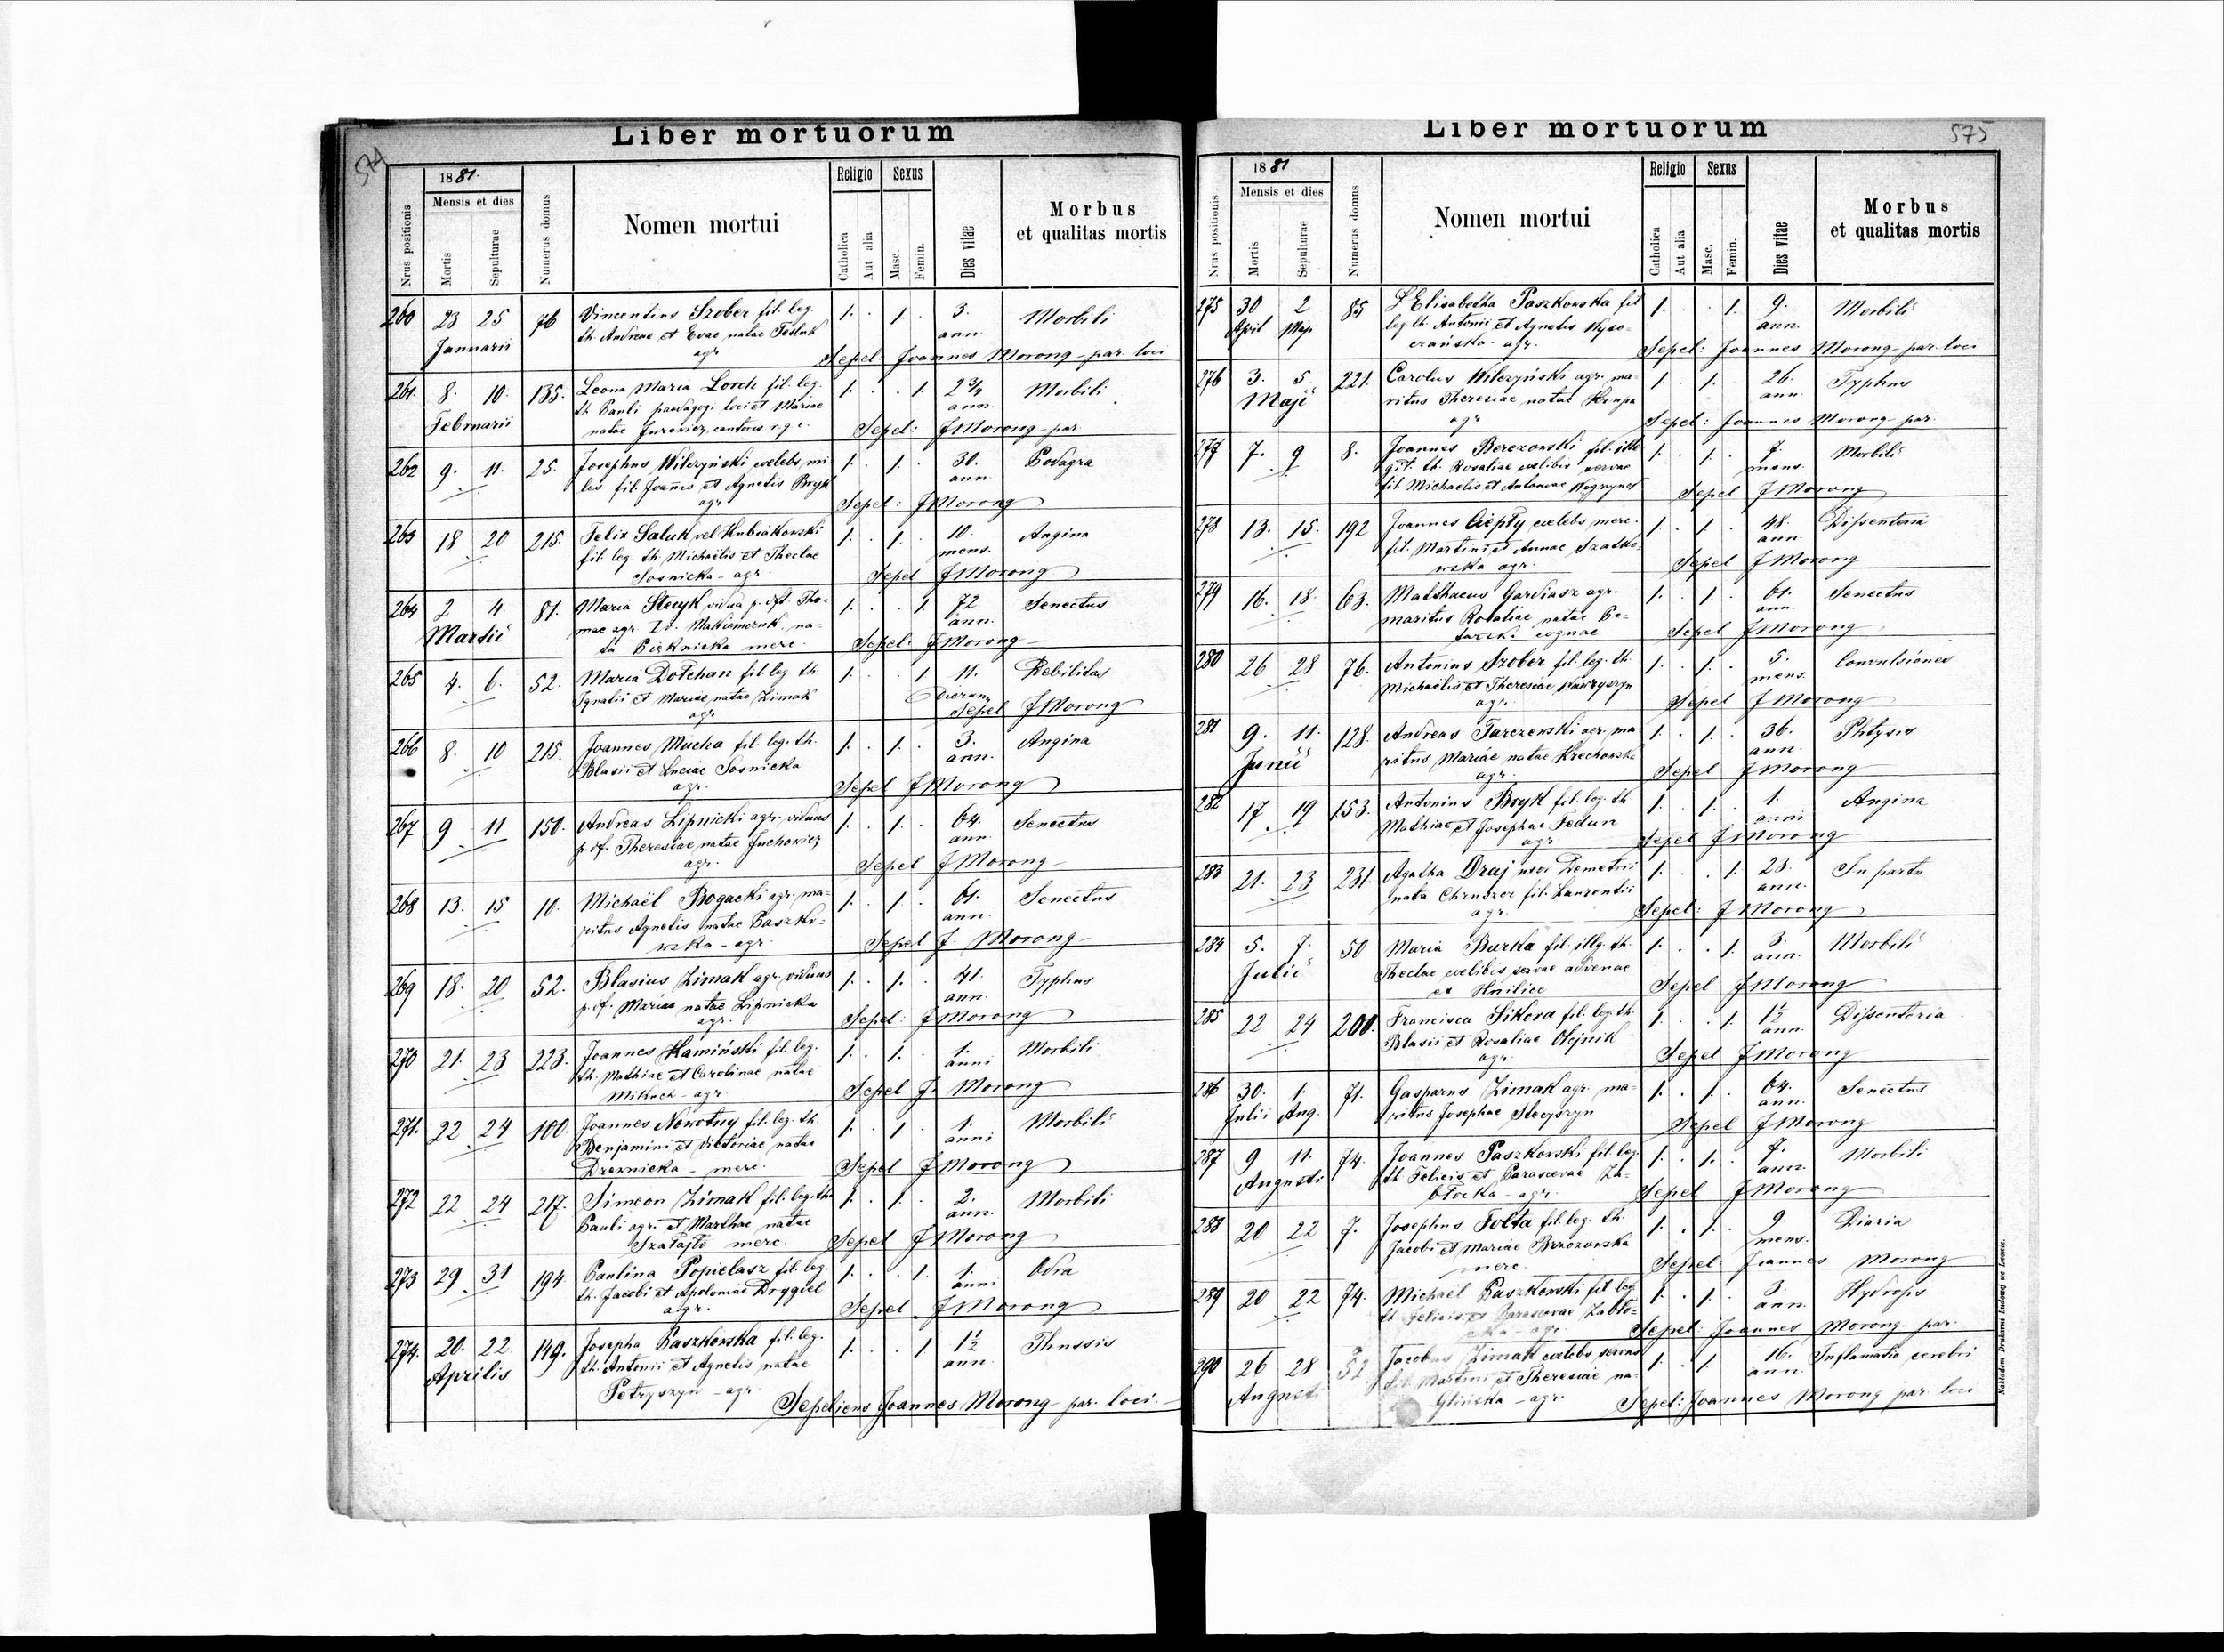 574
Liber mortuorum
Nrus positionis
1881.
Mensis et dies
Mortis
Sepulturae
Numerus domus
Nomen mortui
Religio
Catholica
Aut alia
Sexus
Masc.
Femin.
Dies vitae
Morbus
et qualitas mortis
260 23 25 76 Vincentius Szober fil. leg. 1. 1. 3. Morbili
Januarii th. Andreae et Evae natae ann.
agr. Sepel: Joannes Morong par. loci
261. 8. 10. 135. Leona Maria Lorch fil. leg. 1. 1 2 3/4 Morbili
th. Pauli paedagogi loci et Mariae ann.
Februarii natae Jurewicz, cantoris r.g.c. Sepel: J Morong - par.
262 9. 11. 25. Josephus Wilczyński coelebs, mi- 1. 1. 30. Podagra
les fil. Joannis et Agnetis Bryk ann.
agr. Sepel: J Morong
263 18 20 215. Felix Saluk vel Kubiakowski 1. 1. 10. Angina
fil. leg. th. Michaelis et Theclae mens.
Sosnicka - agr. Sepel J Morong
264 2 4. 81. Maria Stecyk vidua p. dft. Tho- 1. 1 72. Senectus
Martii mae agr. na- ann.
ta Pięknicka merc. Sepel: J Morong
265 4. 6. 52. Maria Dołchan fil. leg. th. 1. 1 11. Debilitas
Ignatii et Mariae natae Zimak dierum
agr. Sepel J Morong
266 8. 10 215. Joannes Mucha fil. leg. th. 1. 1. 3. Angina
Blasii et Luciae Sosnicka ann.
agr. Sepel J Morong
267 9 11 150. Andreas Lipnicki agr. viduus 1. 1. 64. Senectus
p. df. Theresiae natae Juchowicz ann.
agr. Sepel J Morong
268 13. 15 10. Michaël Bogacki agr. ma- 1. 1. 61. Senectus
ritus Agnetis natae Paszko- ann.
wska - agr. Sepel J. Morong
269 18. 20 52. Blasius Zimak agr. viduus 1. 1. 41. Typhus
p. df. Mariae natae Lipnicka ann.
agr. Sepel: J Morong
270 21. 23 223. Joannes Kamiński fil. leg. 1. 1. 1. Morbili
th. Mathiae et Carolinae natae anni
Mikuch - agr. Sepel J. Morong
271. 22 24 100. Joannes Nowotny fil. leg. th. 1. 1. 1. Morbili
Benjamini et Victoriae natae anni
Drewnicka - merc. Sepel J Morong
272 22 24 217. Simeon Zimak fil. leg. th. 1. 1. 2. Morbili
Pauli agr. et Marthae natae ann.
Szałajło merc. Sepel J Morong
273 29 31 194 Paulina Popielasz fil. leg. 1. 1. 1. Odra
th. Jacobi et Apoloniae Drygiel anni
agr. Sepel J Morong
274. 20. 22. 149. Josepha Paszkowska fil. leg. 1. 1 1 1/2 Thussis
Aprilis th. Antonii et Agnetis natae ann.
Petryszyn - agr. Sepeliens Joannes Morong par. loci.
575
Liber mortuorum
Nrus positionis
1881
Mensis et dies
Mortis
Sepulturae
Numerus domus
Nomen mortui
Religio
Catholica
Aut alia
Sexus
Masc.
Femin.
Dies vitae
Morbus
et qualitas mortis
275 30 2 85 Elisabetha Paszkowska fil 1. 1. 9. Morbili
April Maji leg th. Antonii et Agnetis Wyso- ann.
czańska - agr. Sepel: Joannes Morong - par. loci
276 3. 5. 221. Carolus Wilczyński agr. ma- 1. 1. 26. Typhus
Maji ritus Theresiae natae Krupa ann.
agr. Sepel: Joannes Morong par.
277 7. 9 8. Joannes Berezowski fil. ille 1. 1. 7. Morbili
git. th. Rosaliae coelibis servae mens.
fil. Michaelis et Antoninae Sepel J Morong
278 13. 15. 192 Joannes Ciepły coelebs merc. 1. 1. 48. Dissenteria
fil. Martini et Annae Szatko- ann.
wska agr. Sepel J Morong
279 16. 18. 63. Matthaeus Gardiasz agr. 1. 1. 61. Senectus
maritus Rosaliae natae ann.
Sepel J Morong
280 26 28 76. Antonius Szober fil. leg. th. 1. 1. 5. Convulsiones
Michaëlis et Theresiae Wawryszyn mens.
agr. Sepel J Morong
281 9. 11. 128. Andreas Tarczewski agr. ma- 1. 1. 36. Phtysis
Junii ritus Mariae natae Krechowska ann.
agr. Sepel J Morong
282 17 19 153. Antonius Bryk fil. leg. th 1. 1. 1. Angina
Mathiae et Josephae Fedun anni
agr. Sepel J Morong
283 21. 23 231. Agatha Draj uxor Demetrii 1. 1. 23. In partu
nata Chruszcz fil. Laurentii ann.
agr. Sepel: J Morong
284 5. 7. 50 Maria Burka fil. illg. th. 1. 1. 3. Morbili
Julii Theclae coelibis servae advenae ann.
ex Hnilice Sepel J Morong
285 22 24 200. Francisca Sikora fil. leg. th. 1. 1. 1 1/2 Dissenteria
Blasii et Rosaliae Olejnik ann.
agr. Sepel J Morong
286 30. 1. 71. Gasparus Zimak agr. ma- 1. 1. 64. Senectus
Julii Aug. ritus Josephae Stecyszyn ann.
Sepel J Morong
287 9 11. 74. Joannes Paszkowski fil. leg. 1. 1. 7. Morbili
Augusti th. Felicis et Parascevae Za- ann.
błocka - agr. Sepel J Morong
288 20 22 7. Josephus Folta fil. leg. th. 1. 1. 9. Diaria
Jacobi et Mariae Brzozowska mens.
merc. Sepel: Joannes Morong
289 20 22 74. Michaël Paszkowski fil leg 1. 1. 3. Hydrops
th Felicis et Parascevae Zabło- ann.
cka - agr. Sepel: Joannes Morong - par.
290 26 28 52. Jacobus Zimak coelebs servus 1. 1. 16. Inflamatio cerebri
Augusti fil. Martini et Theresiae na- ann.
Glińska - agr. Sepel: Joannes Morong par loci
Nakładem Drukarni Ludowej we Lwowie.